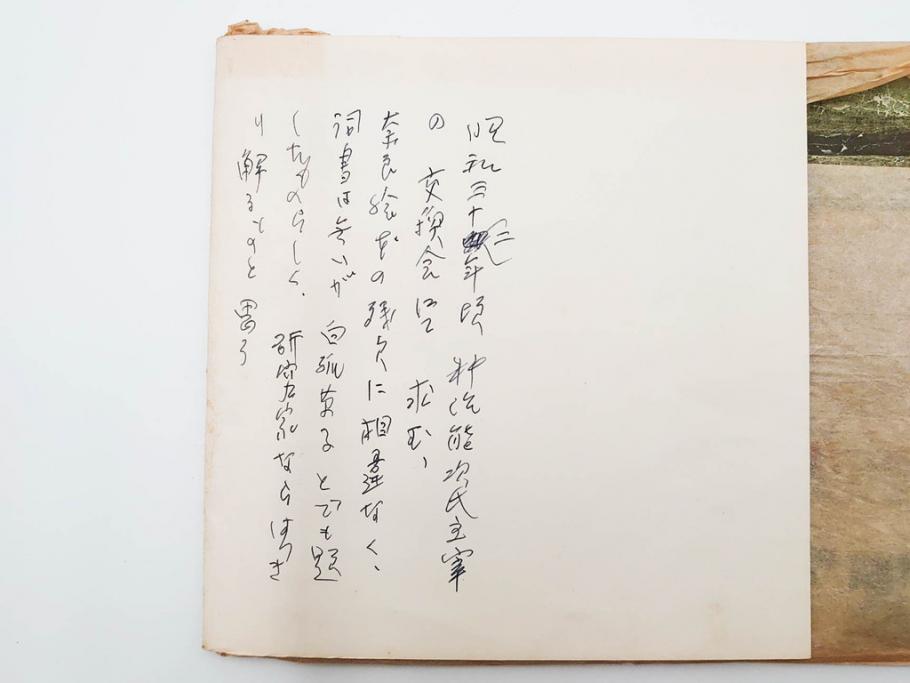 昭和三十二年頃 料治熊次氏主宰
の 交換会にて 求む、
奈良絵本の残欠に相違なく、
詞書は無いが 白狐草子とでも題
したものらしく、研究家ならはつき
り解るものと思う